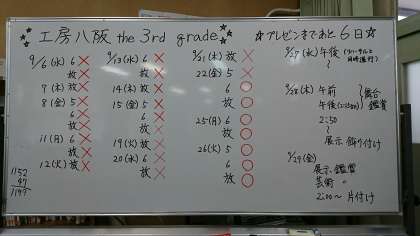 工房八阪 the 3rd grade
★プレゼンまであと6日★
9/6(水) 6 ×
放 ×
7(木) 放 ×
8(金) 5 ×
6 ×
放 ×
11(月) 6 ×
放 ×
12(火) 放 ×
1152
47
1197
9/13(水) 6 ×
放 ×
14(木) 放 ×
15(金) 5 ×
6 ×
放 ×
19(火) 放 ×
20(水) 6 ×
放 ×
9/21(木) 放 ×
22(金) 5 ×
6 ○
放 ○
25(月) 6 ○
放 ○
26(火) 5 ○
6 ○
放 ○
9/27(水) 午後
〜
9/28(木) 午前
午後
舞台
鑑賞
2:50
〜
展示 飾り付け
9/29(金)
展示、鑑賞
芸術 〃
2:00〜 片付け